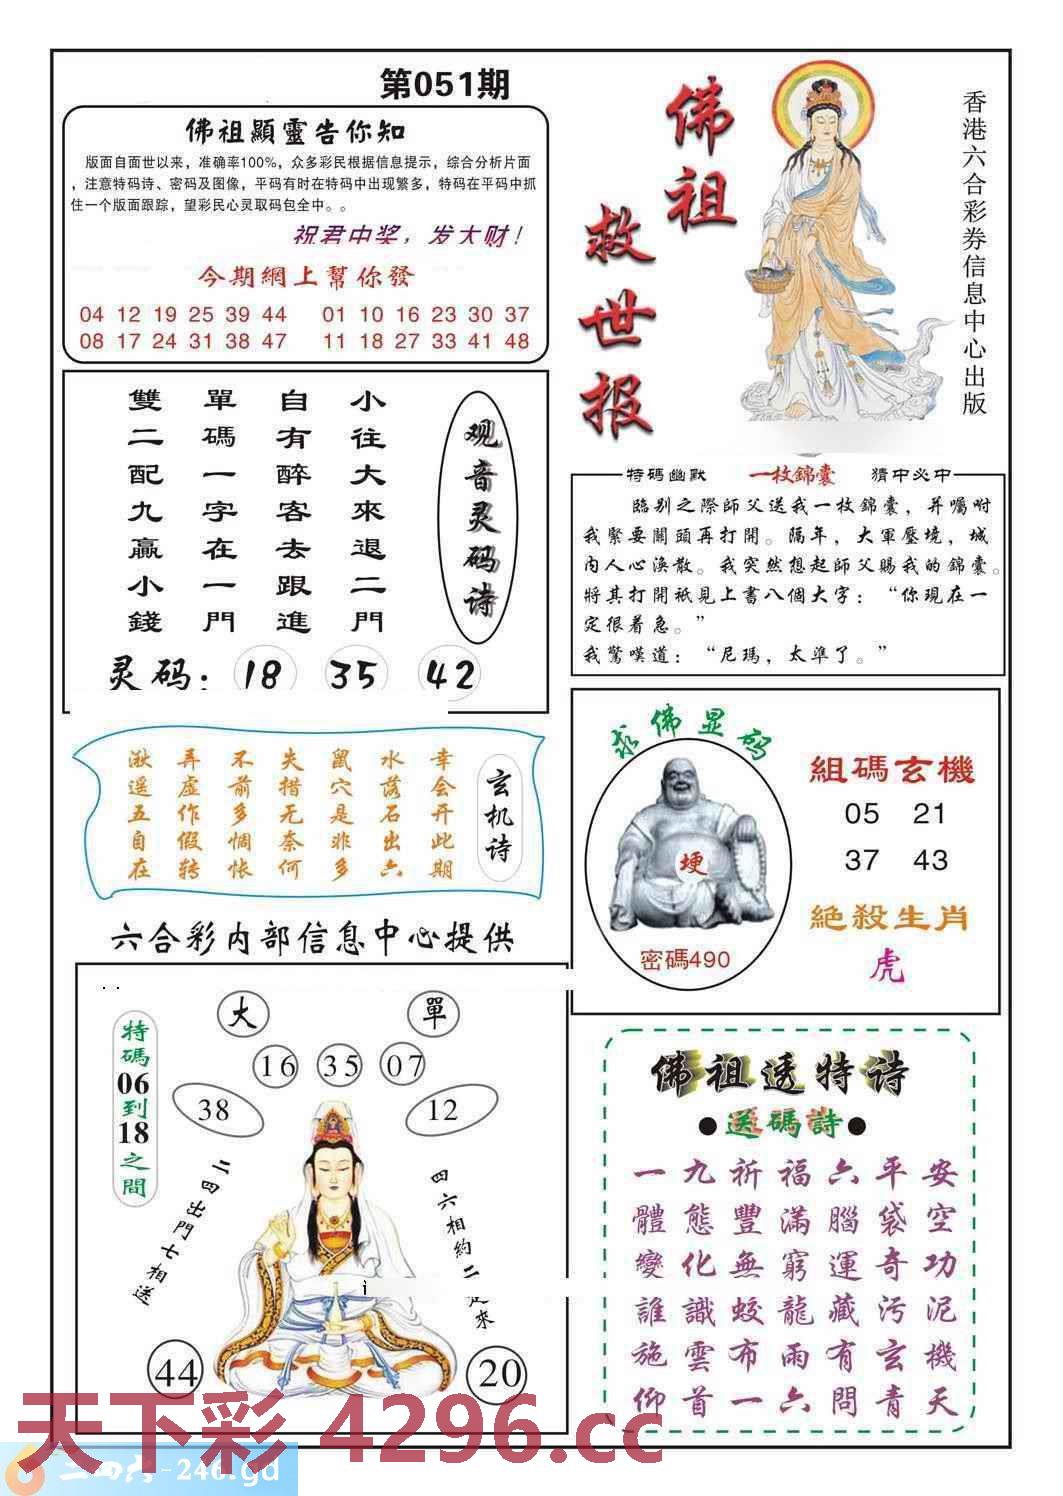 第051期
佛祖顯靈告你知
版面自面世以来，准确率100%，众多彩民根据信息提示，综合分析片面
，注意特码诗、密码及图像，平码有时在特码中出现繁多，特码在平码中抓
住一个版面跟踪，望彩民心灵取码包全中。。
祝君中奖，发大财！
今期網上幫你發
04 12 19 25 39 44 01 10 16 23 30 37
08 17 24 31 38 47 11 18 27 33 41 48
佛祖
救世报
香港六合彩券信息中心出版
观音灵码诗
小往大來退二門
自有醉客去跟進
單碼一字在一門
雙二配九贏小錢
灵码：18 35 42
特碼幽默 一枚錦囊 猜中必中
臨別之際師父送我一枚錦囊，并囑咐
我緊要關頭再打開。隔年，大軍壓境，城
内人心涣散。我突然想起師父賜我的錦囊。
將其打開衹見上書八個大字：“你現在一
定很着急。”
我驚嘆道：“尼瑪，太準了。”
玄机诗
幸会开此期
水落石出六
鼠穴是非多
失措无奈何
不前多惆怅
弄虚作假转
湫遥五自在
求佛显码
埂
密碼490
組碼玄機
05 21
37 43
絕殺生肖
虎
六合彩内部信息中心提供
大 單
16 35 07
38 12
特碼06到18之間
二四出門七相送
四六相約二 來
44 20
佛祖透特诗
●送碼詩●
一九祈福六平安
體態豐滿腦袋空
變化無窮運奇功
誰識蛟龍藏污泥
施雲布雨有玄機
仰首一六問青天
天下彩 4296.cc
二四六-246.gd